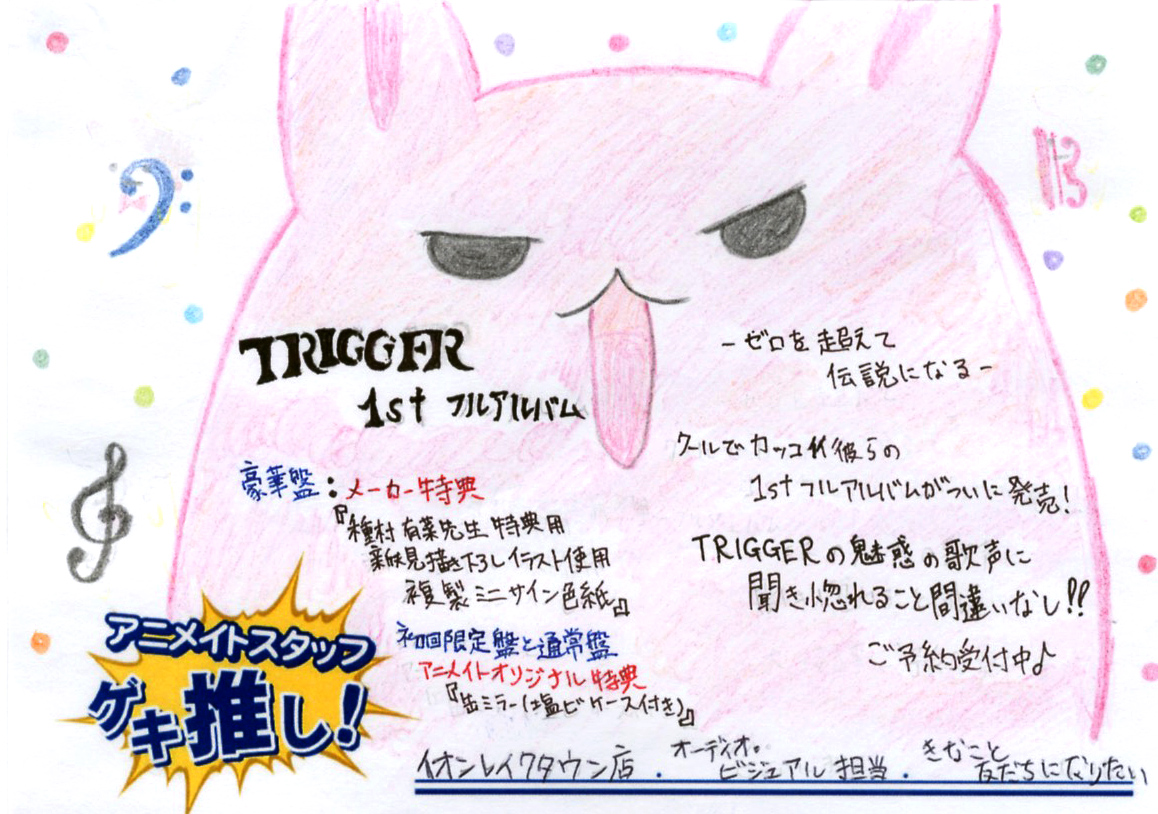 TRIGGER
1st フルアルバム
豪華盤：メーカー特典
『種村有菜先生 特典用
新規見描き下ろしイラスト使用
複製ミニサイン色紙』
初回限定盤と通常盤
アニメイトオリジナル特典
『缶ミラー(塩ビケース付き)』
-ゼロを超えて
伝説になる-
クールでカッコイイ彼らの
1stフルアルバムがついに発売!
TRIGGERの魅惑の歌声に
聞き惚れること間違いなし!!
ご予約受付中♪
アニメイトスタッフ
ゲキ推し!
イオンレイクタウン店 ・ オーディオ・ビジュアル担当 ・ きなこと友だちになりたい